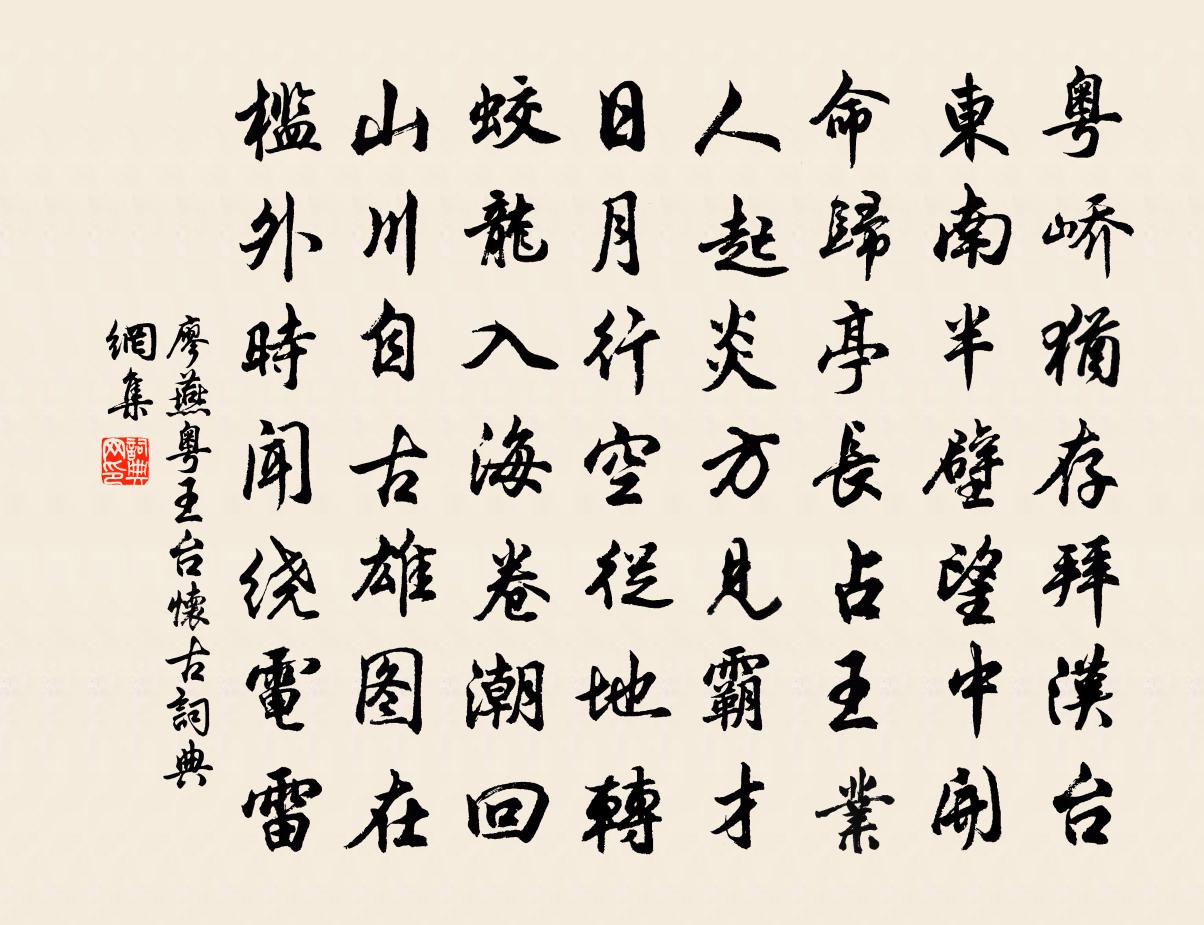 粤峤猶存拜漢台
東南半壁望中開
命歸亭長占王業
人起炎方見霸才
日月行空從地轉
蛟龍入海卷潮回
山川自古雄图在
檻外時聞绕電雷
廖燕粤王台懷古詞典
網集
詞典网印